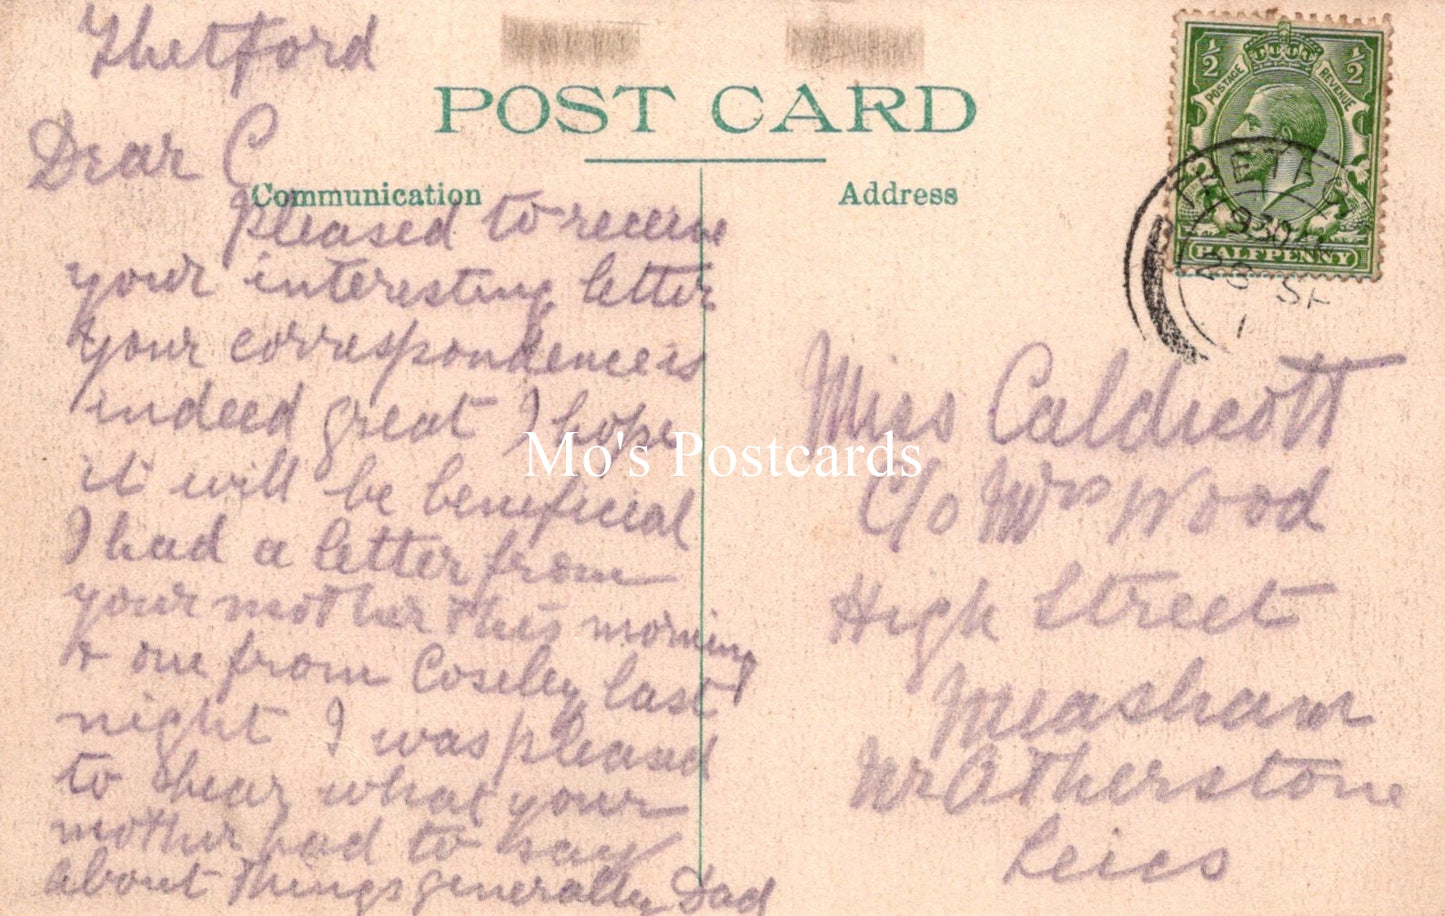 Thetford
POST CARD
Dear C
Communication
pleased to receive
your interesting letter
your correspondence is
indeed great I hope
it will be beneficial
I had a letter from
your mother this morning
& one from Coseley last
night I was pleased
to hear what your
mother had to say
about things generally Dad
Address
Miss Caldicott
C/o Mrs Wood
High Street
Measham
Nr Atherstone
Leics
½ ½
POSTAGE REVENUE
HALFPENNY
THETFO
Mo's Postcards